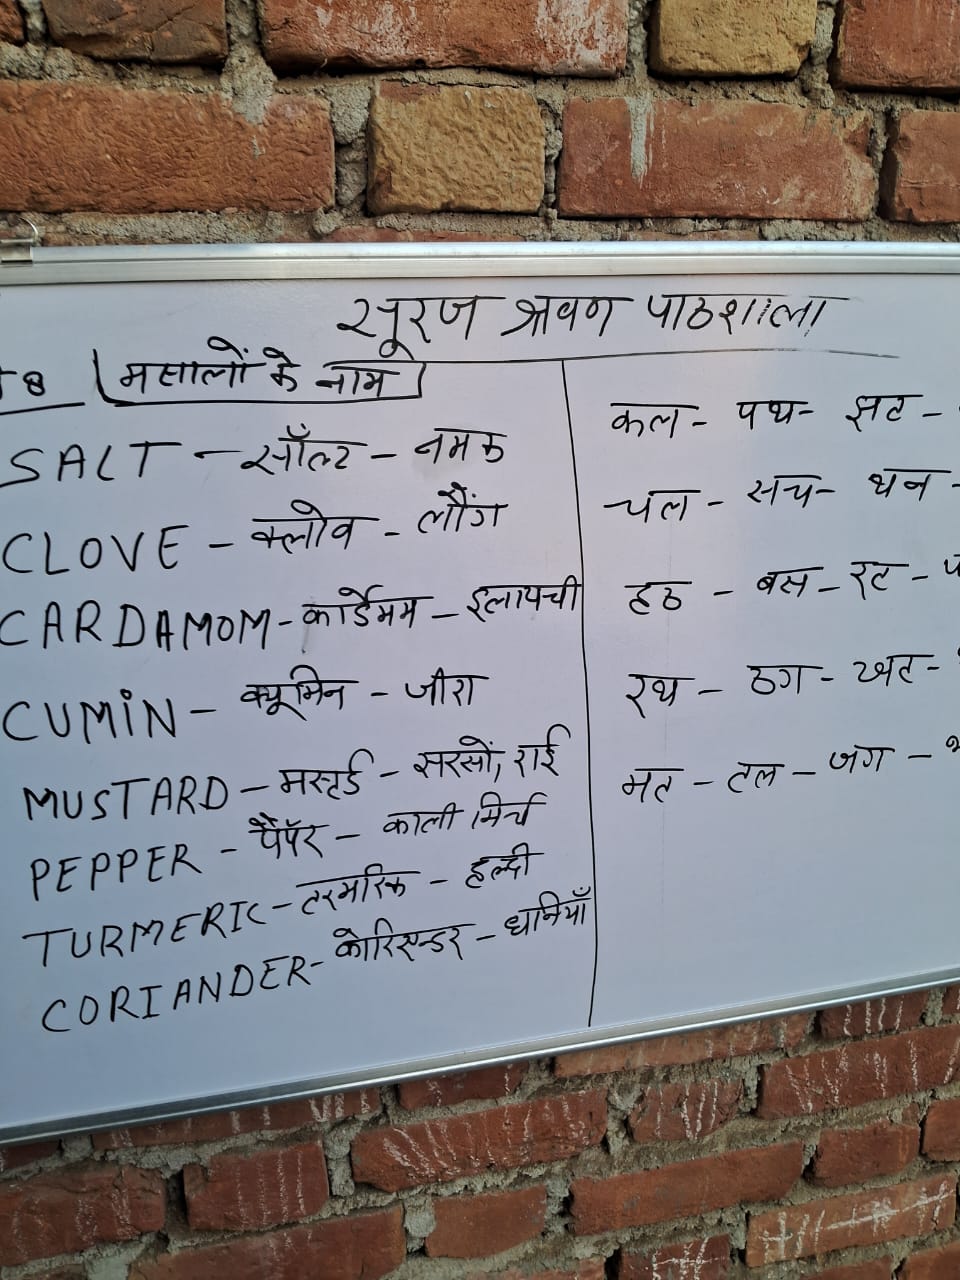 सूरज श्रवण पाठशाला
मसालों के नाम
SALT - सॉल्ट - नमक
CLOVE - क्लोव - लौंग
CARDAMOM - कार्डेमम - इलायची
CUMIN - क्यूमिन - जीरा
MUSTARD - मस्टर्ड - सरसों, राई
PEPPER - पैपॅर - काली मिर्च
TURMERIC - टरमरिक - हल्दी
CORIANDER - कोरिएन्डर - धनियाँ
कल - पथ - झट -
चल - सच - थन -
हठ - बस - रट -
रथ - ठग - खट -
मट - टल - जग -